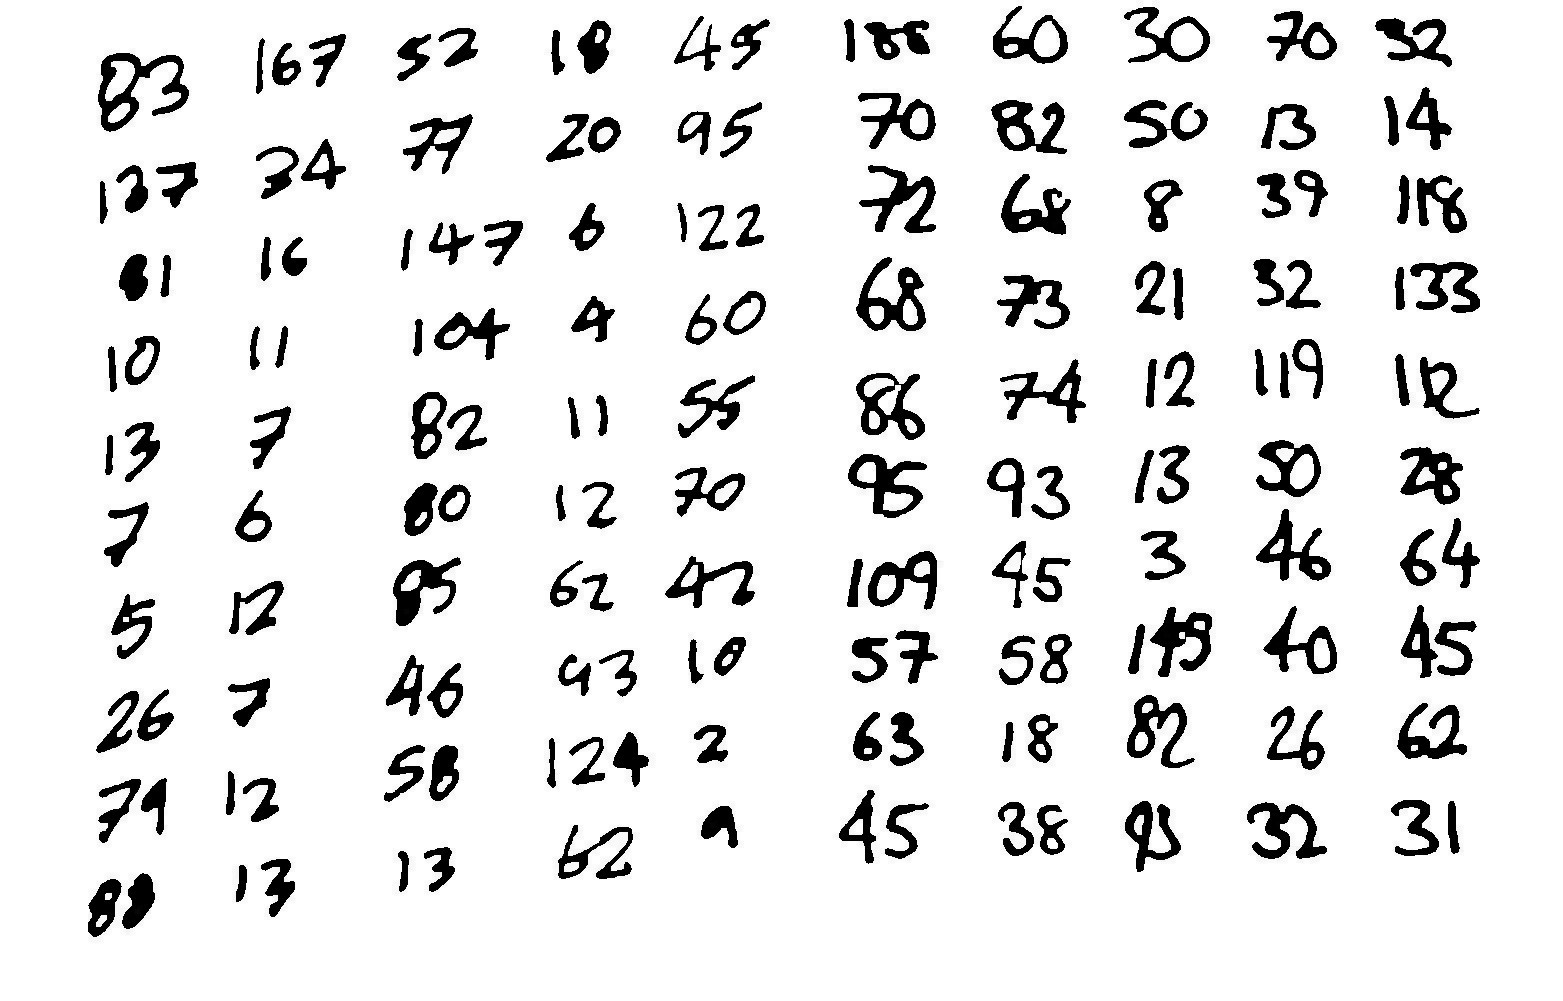 83 167 52 18 45 188 60 30 70 32
137 34 77 20 95 70 82 50 13 14
81 16 147 6 122 72 68 8 39 118
10 11 104 4 60 68 73 21 32 133
13 7 82 11 55 86 74 12 119 112
7 6 80 12 70 95 93 13 50 28
5 12 85 62 42 109 45 3 46 64
26 7 46 93 10 57 58 149 40 45
79 12 58 124 2 63 18 82 26 62
88 13 13 62 9 45 38 93 32 31